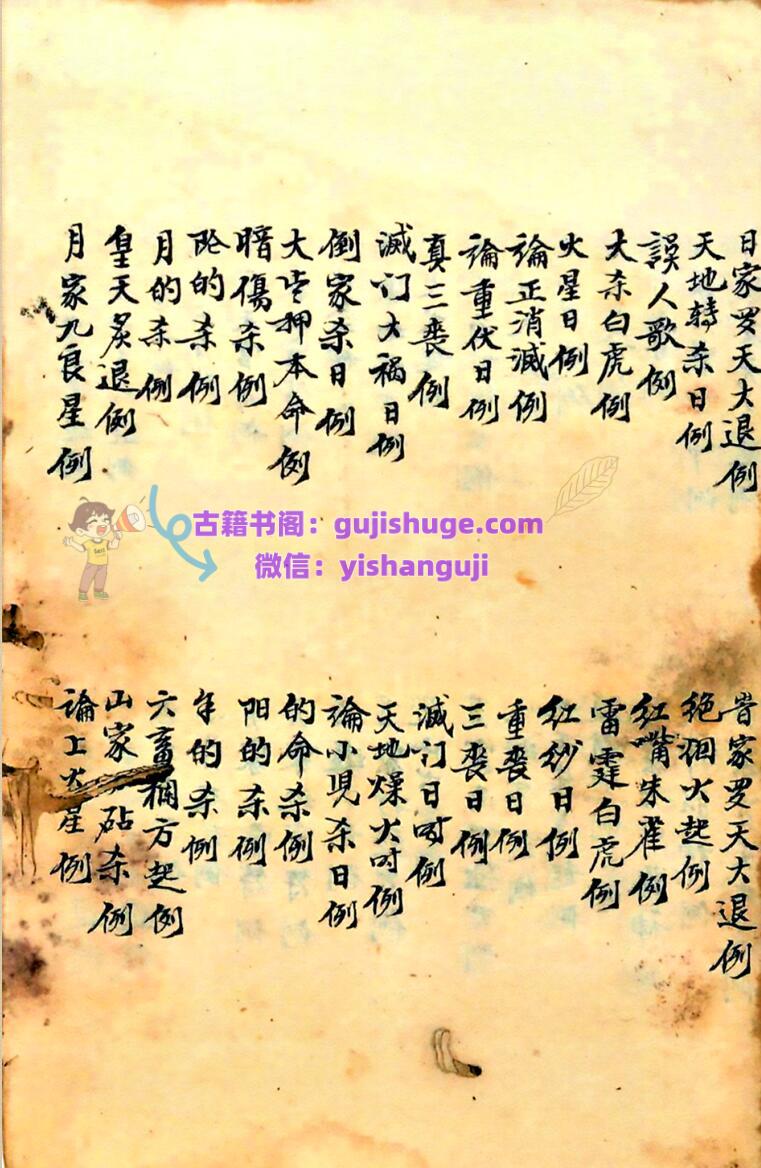 日家罗天大退例
天地轉杀日例
誤人歌例
大杀白虎例
火星日例
論正消滅例
論重伏日例
真三喪例
滅门大禍日例
倒家杀日例
大笁押本命例
暗傷杀例
阴的杀例
月的杀例
皇天炙退例
月家九良星例
古籍书阁：gujishuge.com
微信：yishanguji
旹家罗天大退例
绝烟火起例
紅嘴朱雀例
雷霆白虎例
紅纱日例
重喪日例
三喪日例
滅门日时例
天地燥火时例
論小児杀日例
的命杀例
阳的杀例
年的杀例
六畜欄方起例
山家刀砧杀例
論上火星例